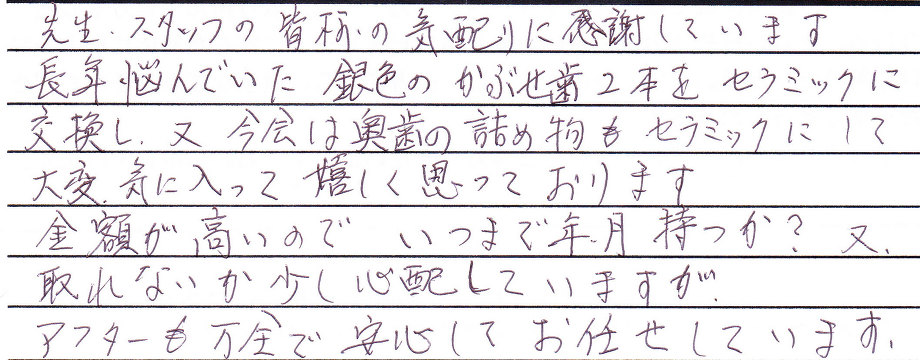 先生.スタッフの皆様の気配りに感謝しています
長年悩んでいた銀色のかぶせ歯2本をセラミックに
交換し.又今会は奥歯の詰め物もセラミックにして
大変.気に入って嬉しく思っております
金額が高いので いつまで年.月持つか?又.
取れないか少し心配していますが.
アフターも万全で安心してお任せしています.